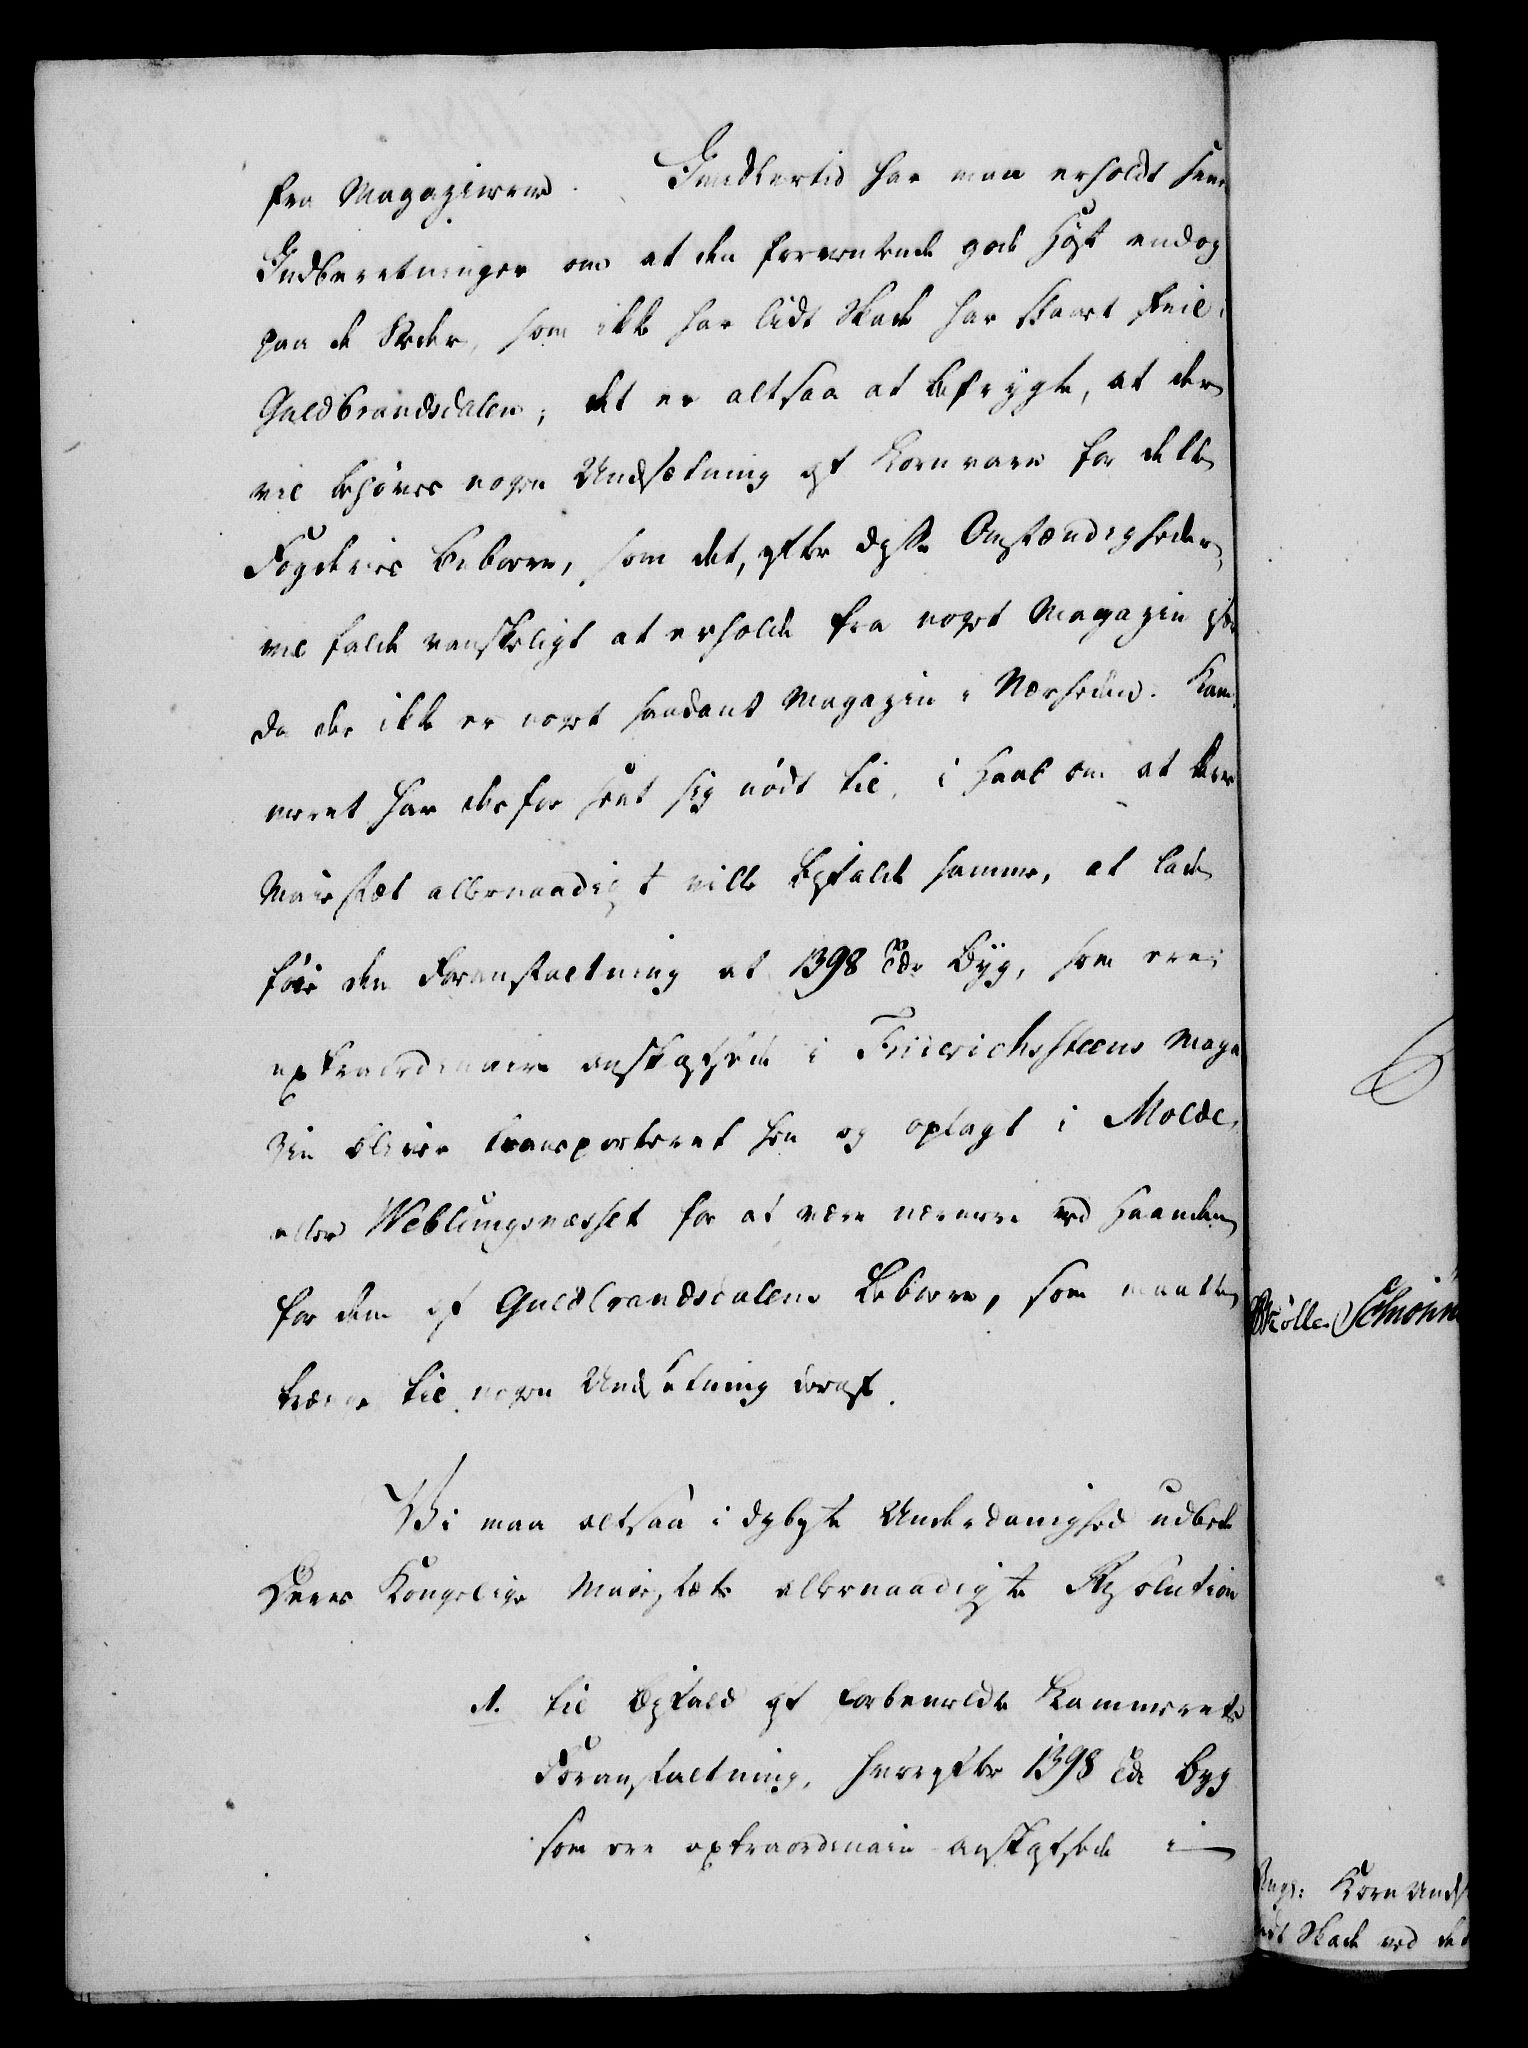 fra Magazinerne. Imidlertid har man erholdt
Indberetninger om at den forventende gode Høst endog
paa de Steder, som ikke har lidt Skade har slaaet feil i
Guldbrandsdalen; det er altsaa at befrygte, at der
vil behøves nogen Undsætning af Kornvare for dette
Fogderies Beboere, som det, efter disse Omstændigheder
vil falde vanskeligt at erholde fra noget Magazin
da der ikke er noget saadant Magazin i Nærheden. Kam¬
meret har derfor seet sig nødt til, i Haab om at Deres
Majestæt allernaadigst ville bifalde samme, at lade
føie den Foranstaltning at 1398 Tdr Byg, som ere
extraordinaire anskaffede i Friderichssteens Maga
zin bliver transporteret hen og oplagt i Molde
eller Weblungsnæsset for at være nærmere ved Haanden
for dem af Guldbrandsdalens Beboere, som maatte
trænge til nogen Undsætning deraf.
Vi maa altsaa i dybeste Underdanighed udbede
Deres Kongelige Majestæts allernaadigste Resolution
1. til Bifald af forbemeldte Kammerets
Foranstaltning, hvorefter 1398 Tdr Byg
som ere extraordinair anskaffede i
Møller Schiönn
Korn Unds
Skade ved